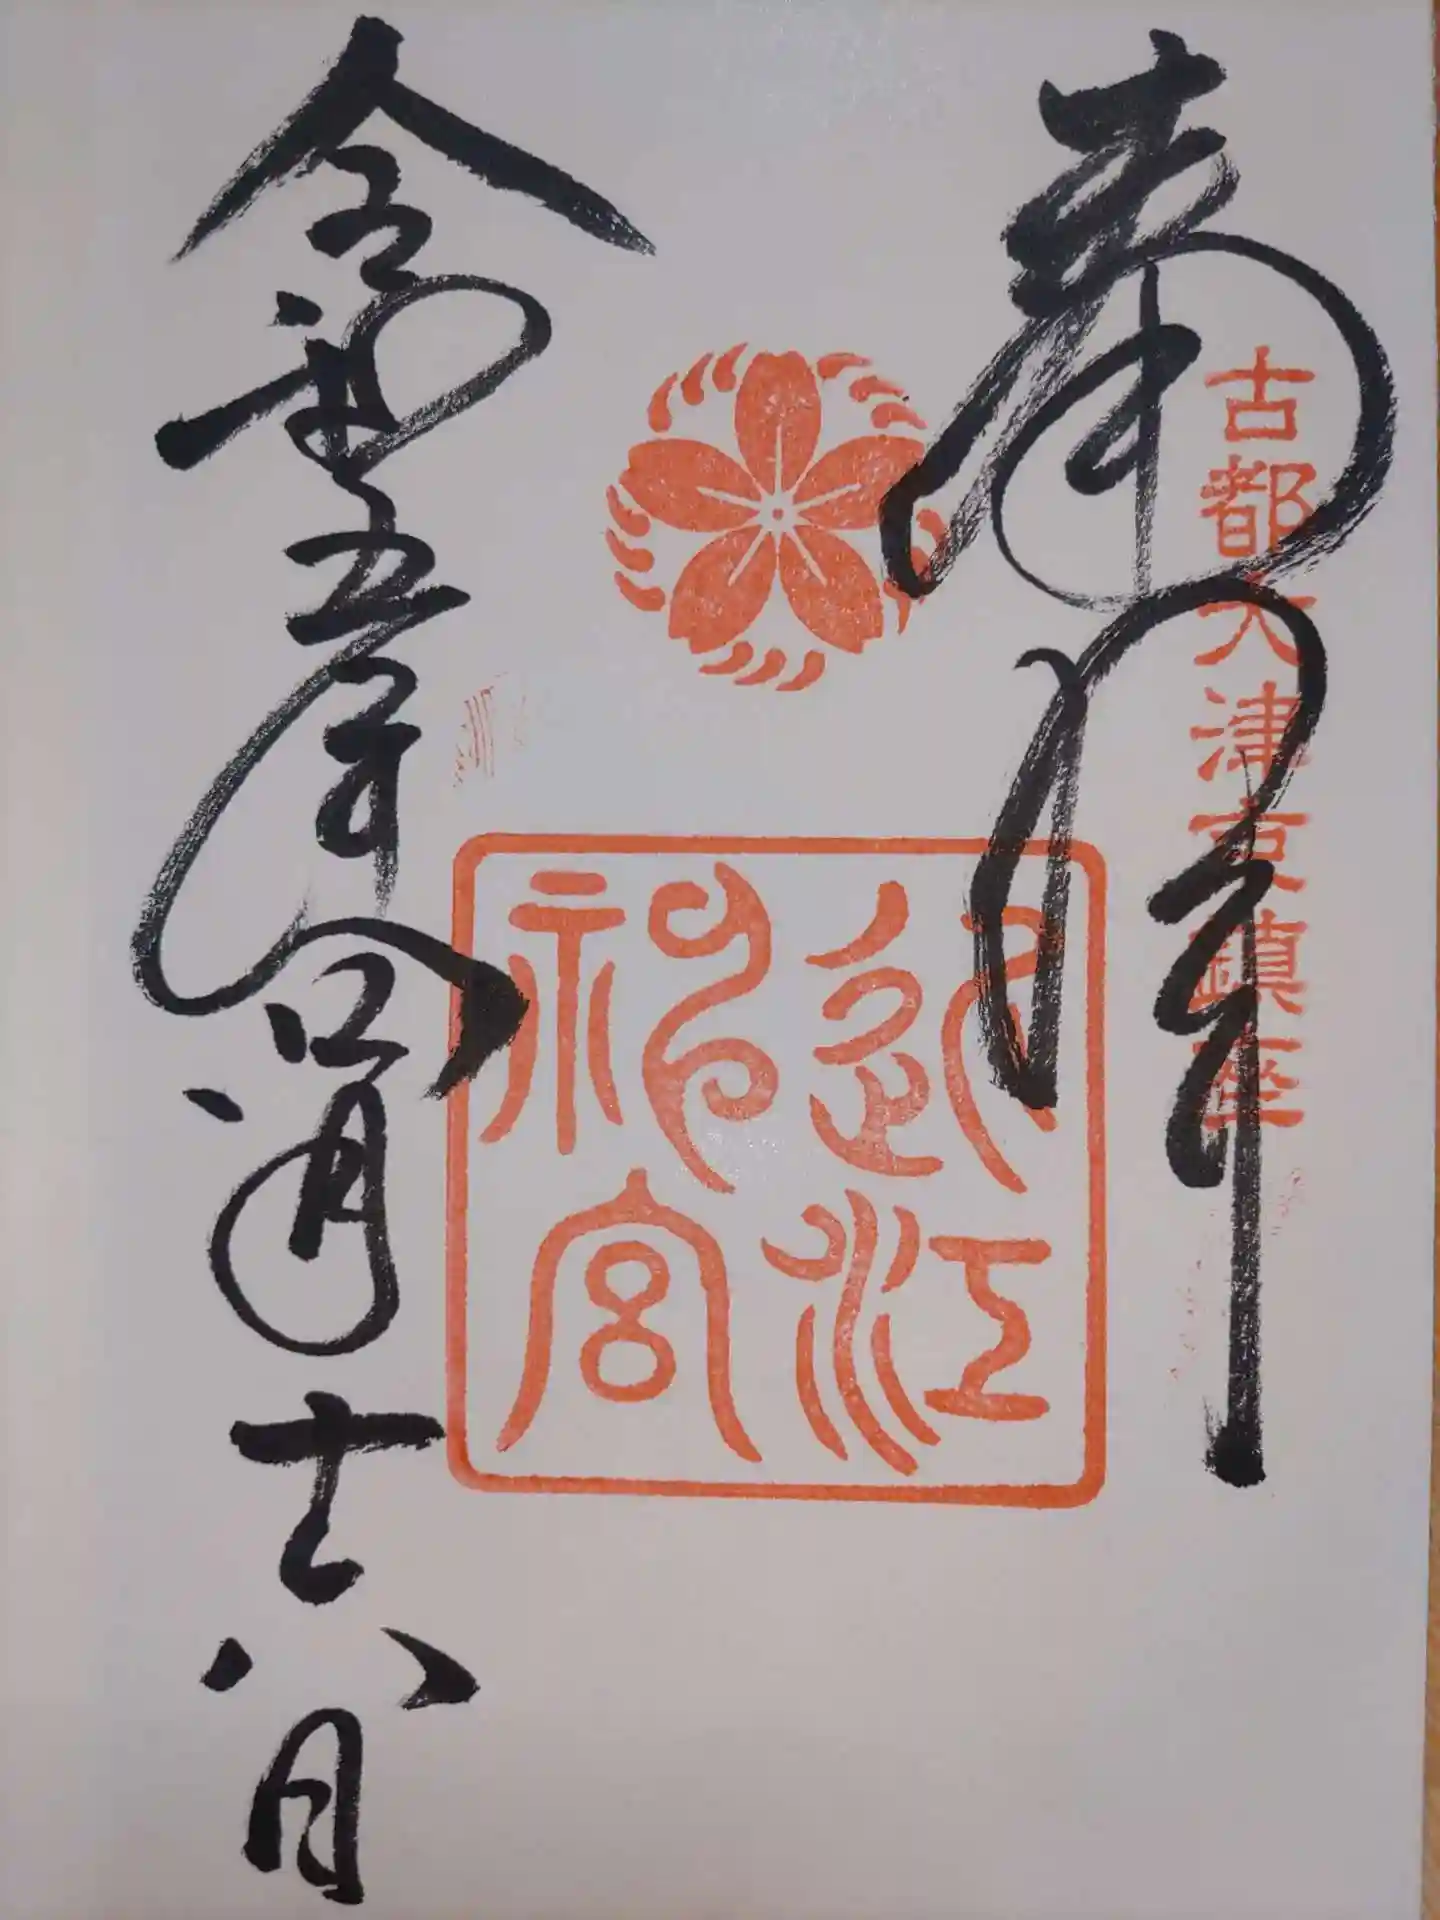 奉拝
古都大津京鎮座
近江
神宮
令和五年四月十六日